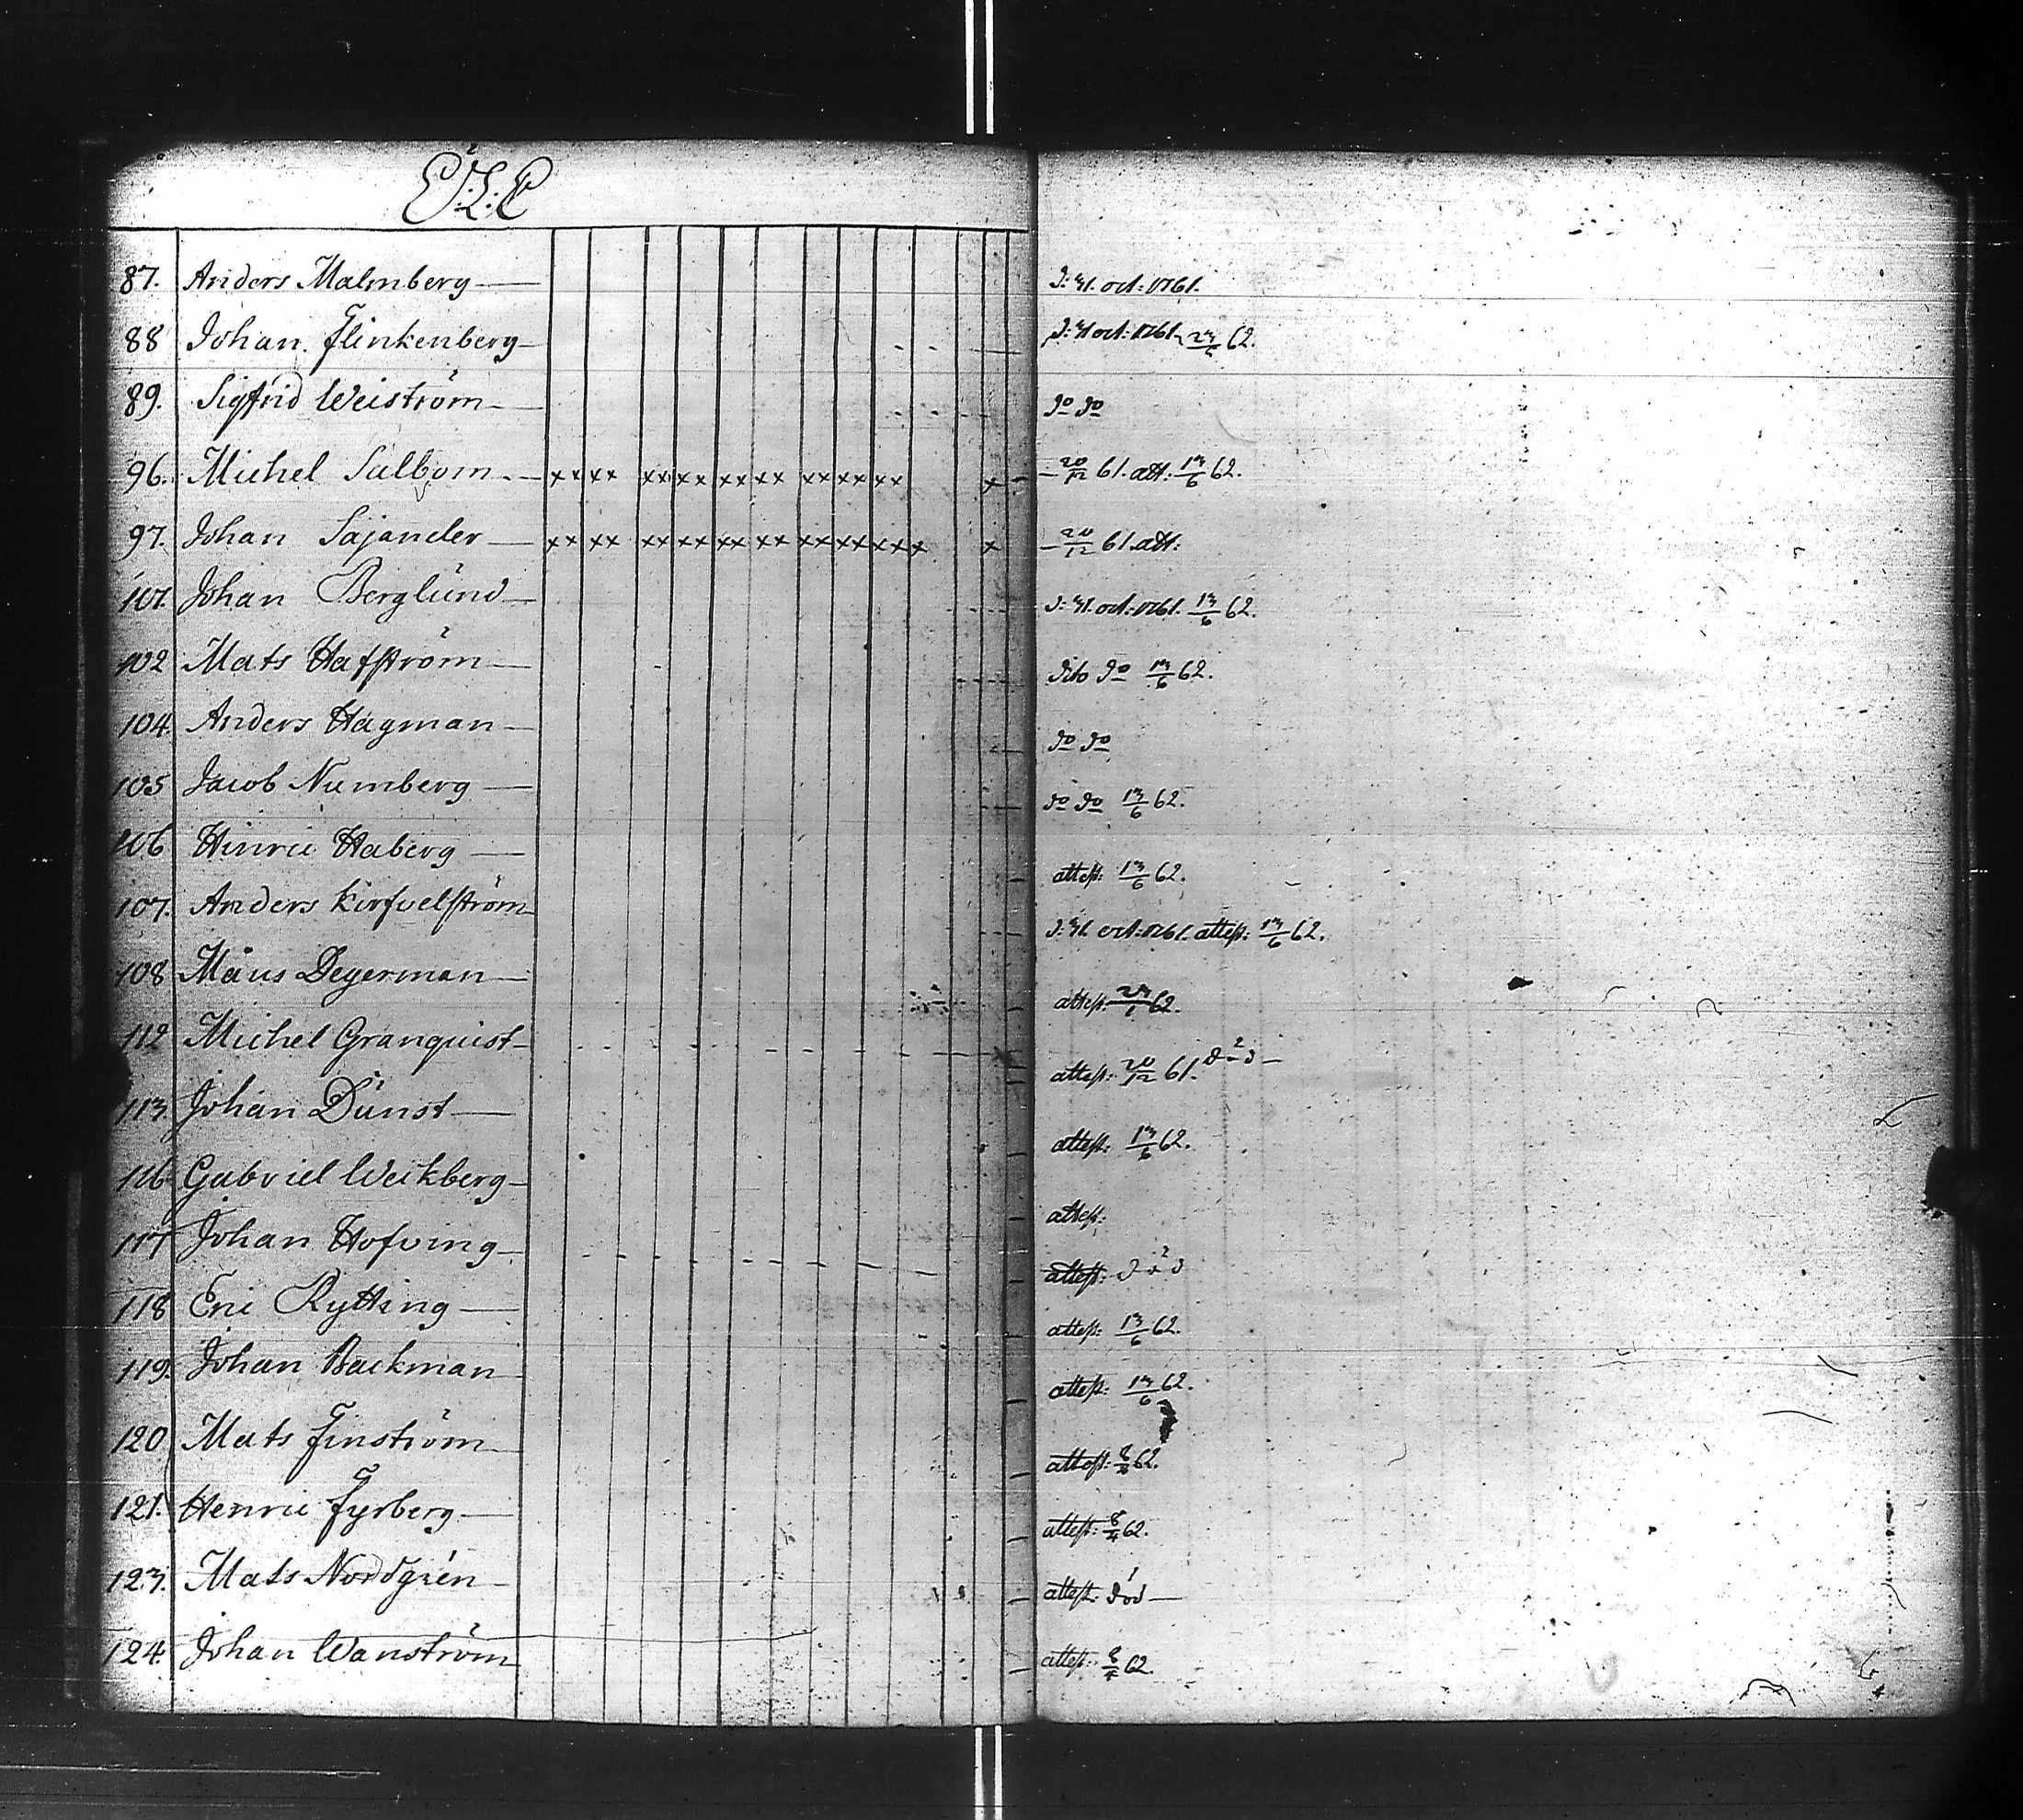 Ö.L.C
87. Anders Malmberg — d: 31. oct: 1761.
88 Johan Flinkenberg — d: 31 oct: 1761. 23/6 62.
89. Sigfrid Weiström — do do
96. Michel Salbom — xx xx xx xx xx xx xx xx xx x – 20/12 61. att: 13/6 62.
97. Johan Sajander — xx xx xx xx xx xx xx xx xx x x – 20/12 61. att:
101. Johan Berglund — d: 31. oct: 1761. 13/6 62.
102 Mats Hafström — dito do 13/6 62.
104. Anders Hagman — do do
105 Jacob Numberg — do do 13/6 62.
106 Hinric Haberg — attest: 13/6 62.
107. Anders Kirfvelström d: 31. oct: 1761. attest: 13/6 62.
108 Måns Degerman — attest: 23/6 62.
112 Michel Granquist — attest: 20/12 61. död —
113 Johan Dunst — attest: 13/6 62.
116 Gabriel Weikberg — attest:
117 Johan Hofving — attest: död
118 Eric Rytting — attest: 13/6 62.
119. Johan Backman attest: 13/6 62.
120 Mats Finström attest: 8/4 62.
121. Henric Fyrberg — attest: 8/4 62.
123. Mats Nordgrén attest: död —
124. Johan Wanström attest: 8/4 62.